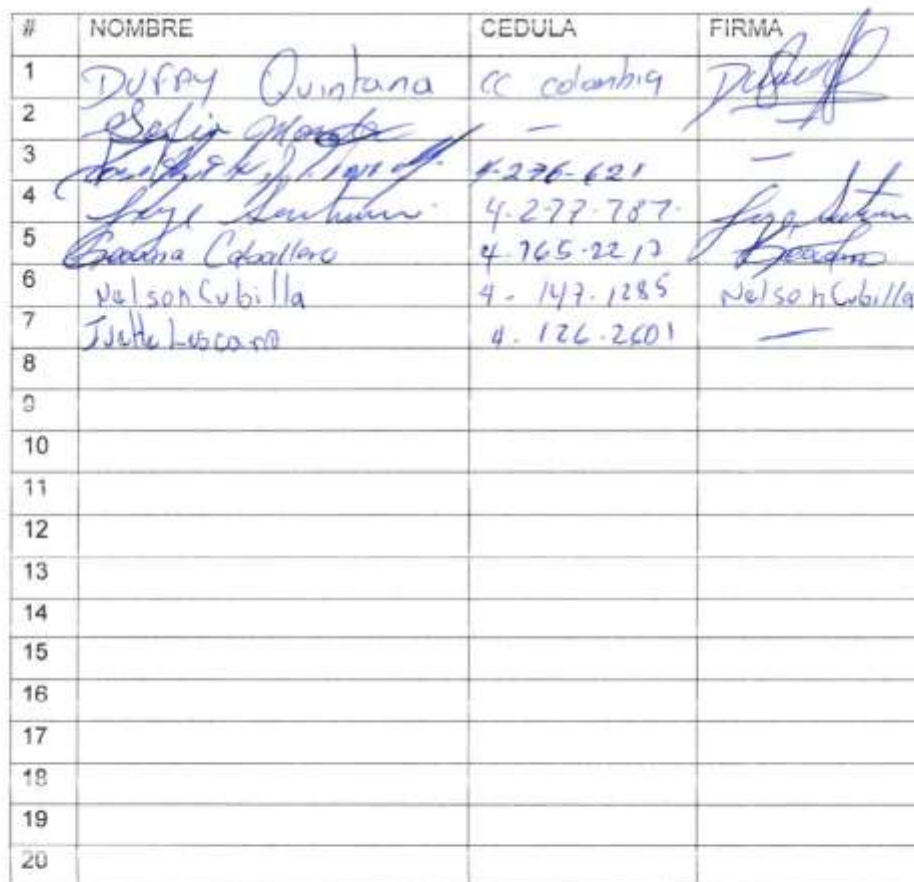 # NOMBRE CEDULA FIRMA
1 Duffy Quintana cc colombia
2 Sofia —
3 4-276-621 —
4 Jorge 4-277-787. Jorge
5 Caballero 4-765-2217
6 Nelson Cubilla 4-147-1285 Nelson Cubilla
7 Lescano 4-126-2601 —
8
9
10
11
12
13
14
15
16
17
18
19
20